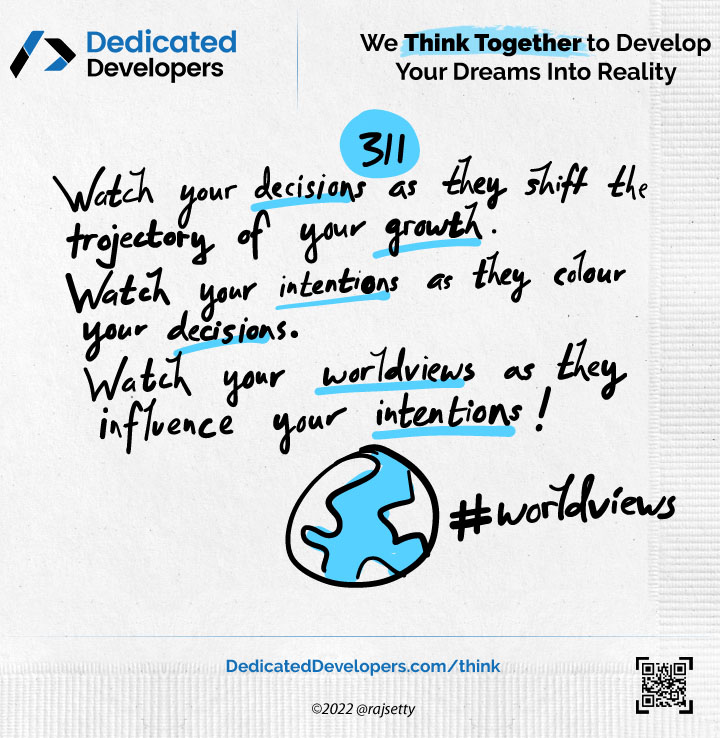 Dedicated
Developers
We Think Together to Develop
Your Dreams Into Reality
311
Watch your decisions as they shift the
trajectory of your growth.
Watch your intentions as they colour
your decisions.
Watch your worldviews as they
influence your intentions!
#worldviews
DedicatedDevelopers.com/think
©2022 @rajsetty